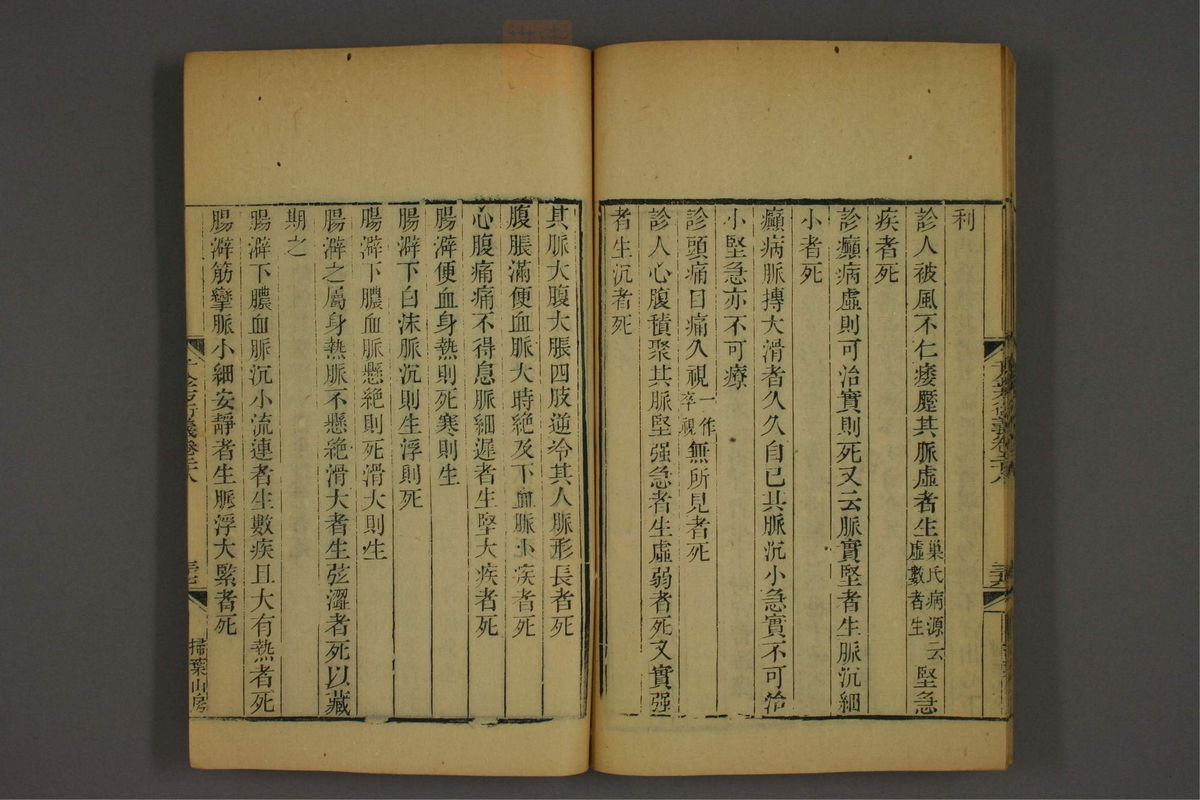 利
診人被風不仁痿蹷其脈虛者生巢氏病源云虛數者生堅急
疾者死
診癲病虛則可治實則死又云脈實堅者生脈沉細
小者死
癲病脈摶大滑者久久自已其脈沉小急實不可治
小堅急亦不可療
診頭痛目痛久視一作卒視無所見者死
診人心腹積聚其脈堅强急者生虛弱者死又實强
者生沉者死
其脈大腹大脹四肢逆冷其人脈形長者死
腹脹滿便血脈大時絶及下血脈小疾者死
心腹痛痛不得息脈細遲者生堅大疾者死
腸澼便血身熱則死寒則生
腸澼下白沫脈沉則生浮則死
腸澼下膿血脈懸絶則死滑大則生
腸澼之屬身熱脈不懸絶滑大者生弦澀者死以藏
期之
腸澼下膿血脈沉小流連者生數疾且大有熱者死
腸澼筋攣脈小細安靜者生脈浮大緊者死
掃葉山房